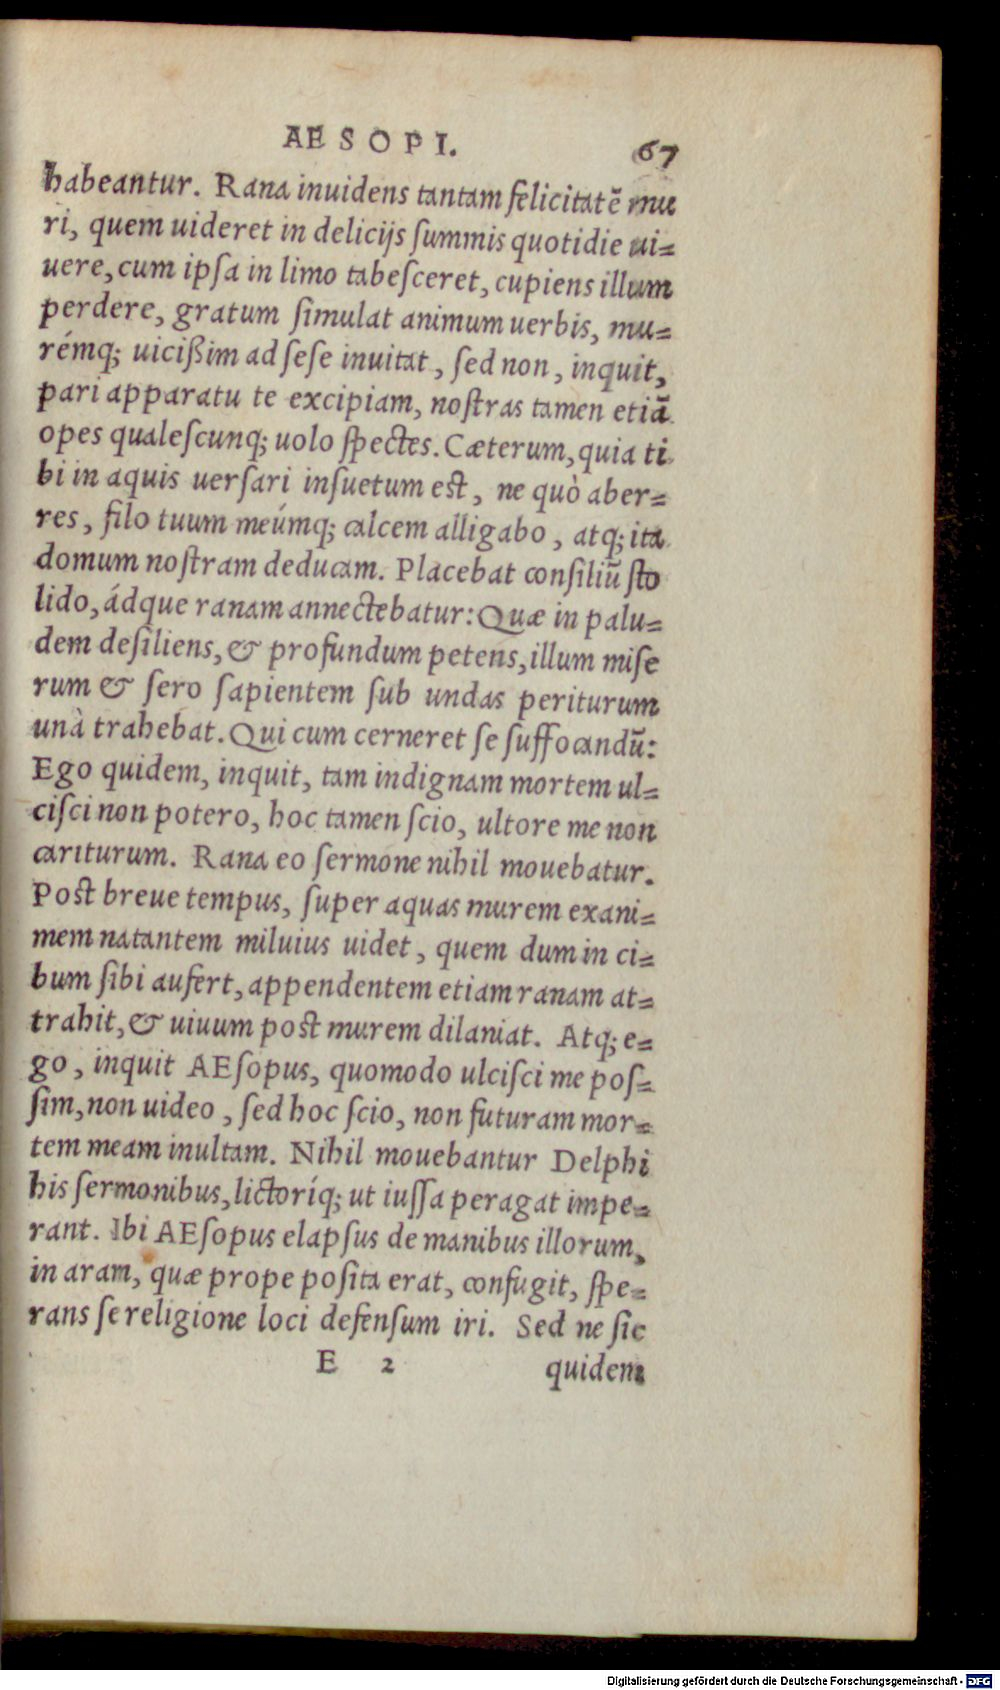 AESOPI. 67
habeantur. Rana inuidens tantam felicitatẽ mu
ri, quem uideret in delicijs ſummis quotidie ui=
uere, cum ipſa in limo tabeſceret, cupiens illum
perdere, gratum ſimulat animum uerbis, mu=
rémq; uicißim ad ſeſe inuitat, ſed non, inquit,
pari apparatu te excipiam, noſtras tamen etiã
opes qualeſcunq; uolo ſpectes. Cæterum, quia ti
bi in aquis uerſari inſuetum eſt, ne quò aber=
res, filo tuum meúmq; calcem alligabo, atq; ita
domum noſtram deducam. Placebat conſiliũ ſto
lido, ádque ranam annectebatur: Quæ in palu=
dem deſiliens, & profundum petens, illum miſe
rum & ſero ſapientem ſub undas periturum
unà trahebat. Qui cum cerneret ſe ſuffocandũ:
Ego quidem, inquit, tam indignam mortem ul=
ciſci non potero, hoc tamen ſcio, ultore me non
cariturum. Rana eo ſermone nihil mouebatur.
Poſt breue tempus, ſuper aquas murem exani=
mem natantem miluius uidet, quem dum in ci=
bum ſibi aufert, appendentem etiam ranam at=
trahit, & uiuum poſt murem dilaniat. Atq; e=
go, inquit AEſopus, quomodo ulciſci me poſ=
ſim, non uideo, ſed hoc ſcio, non futuram mor=
tem meam inultam. Nihil mouebantur Delphi
his ſermonibus, lictoríq; ut iuſſa peragat impe=
rant. Ibi AEſopus elapſus de manibus illorum,
in aram, quæ prope poſita erat, confugit, ſpe=
rans ſe religione loci defenſum iri. Sed ne ſic
E 2 quidem
Digitalisierung gefördert durch die Deutsche Forschungsgemeinschaft - DFG